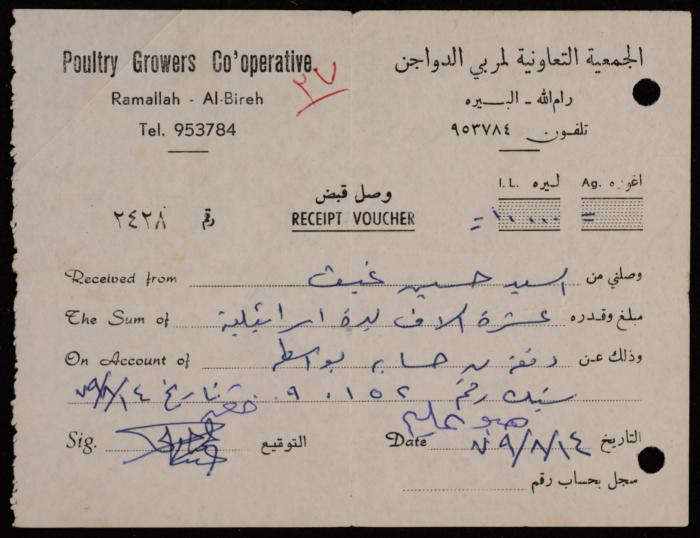 Poultry Growers Co'operative.
الجمعية التعاونية لمربي الدواجن
٢٧
Ramallah - Al-Bireh
رام الله - البيره
Tel. 953784
تلفون ٩٥٣٧٨٤
I.L. ليره Ag. اغوره
وصل قبض
RECEIPT VOUCHER
رقم ٢٤٢٨
Received from السيد حسين وصلني من
The Sum of عشرة الاف ليرة اسرائيلية مبلغ وقدره
On Account of دفعة من حسابه بواسطة وذلك عن
شيك رقم ٩٠١٥٢ تاريخ ٧٩/٨/١٤
Sig. التوقيع
Date ٧٩/٨/١٤ التاريخ
سجل بحساب رقم